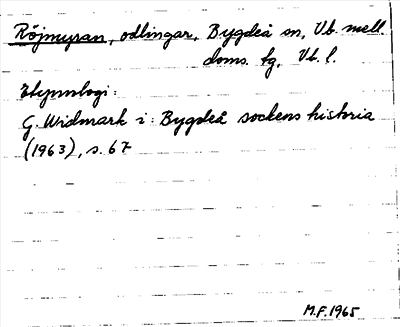 Röjmyran, odlingar, Bygdeå sn, Vb. mell.
doms. tg, Vb. l.
Etymologi:
G. Widmark i: Bygdeå sockens historia
(1963), s. 67
M.F. 1965